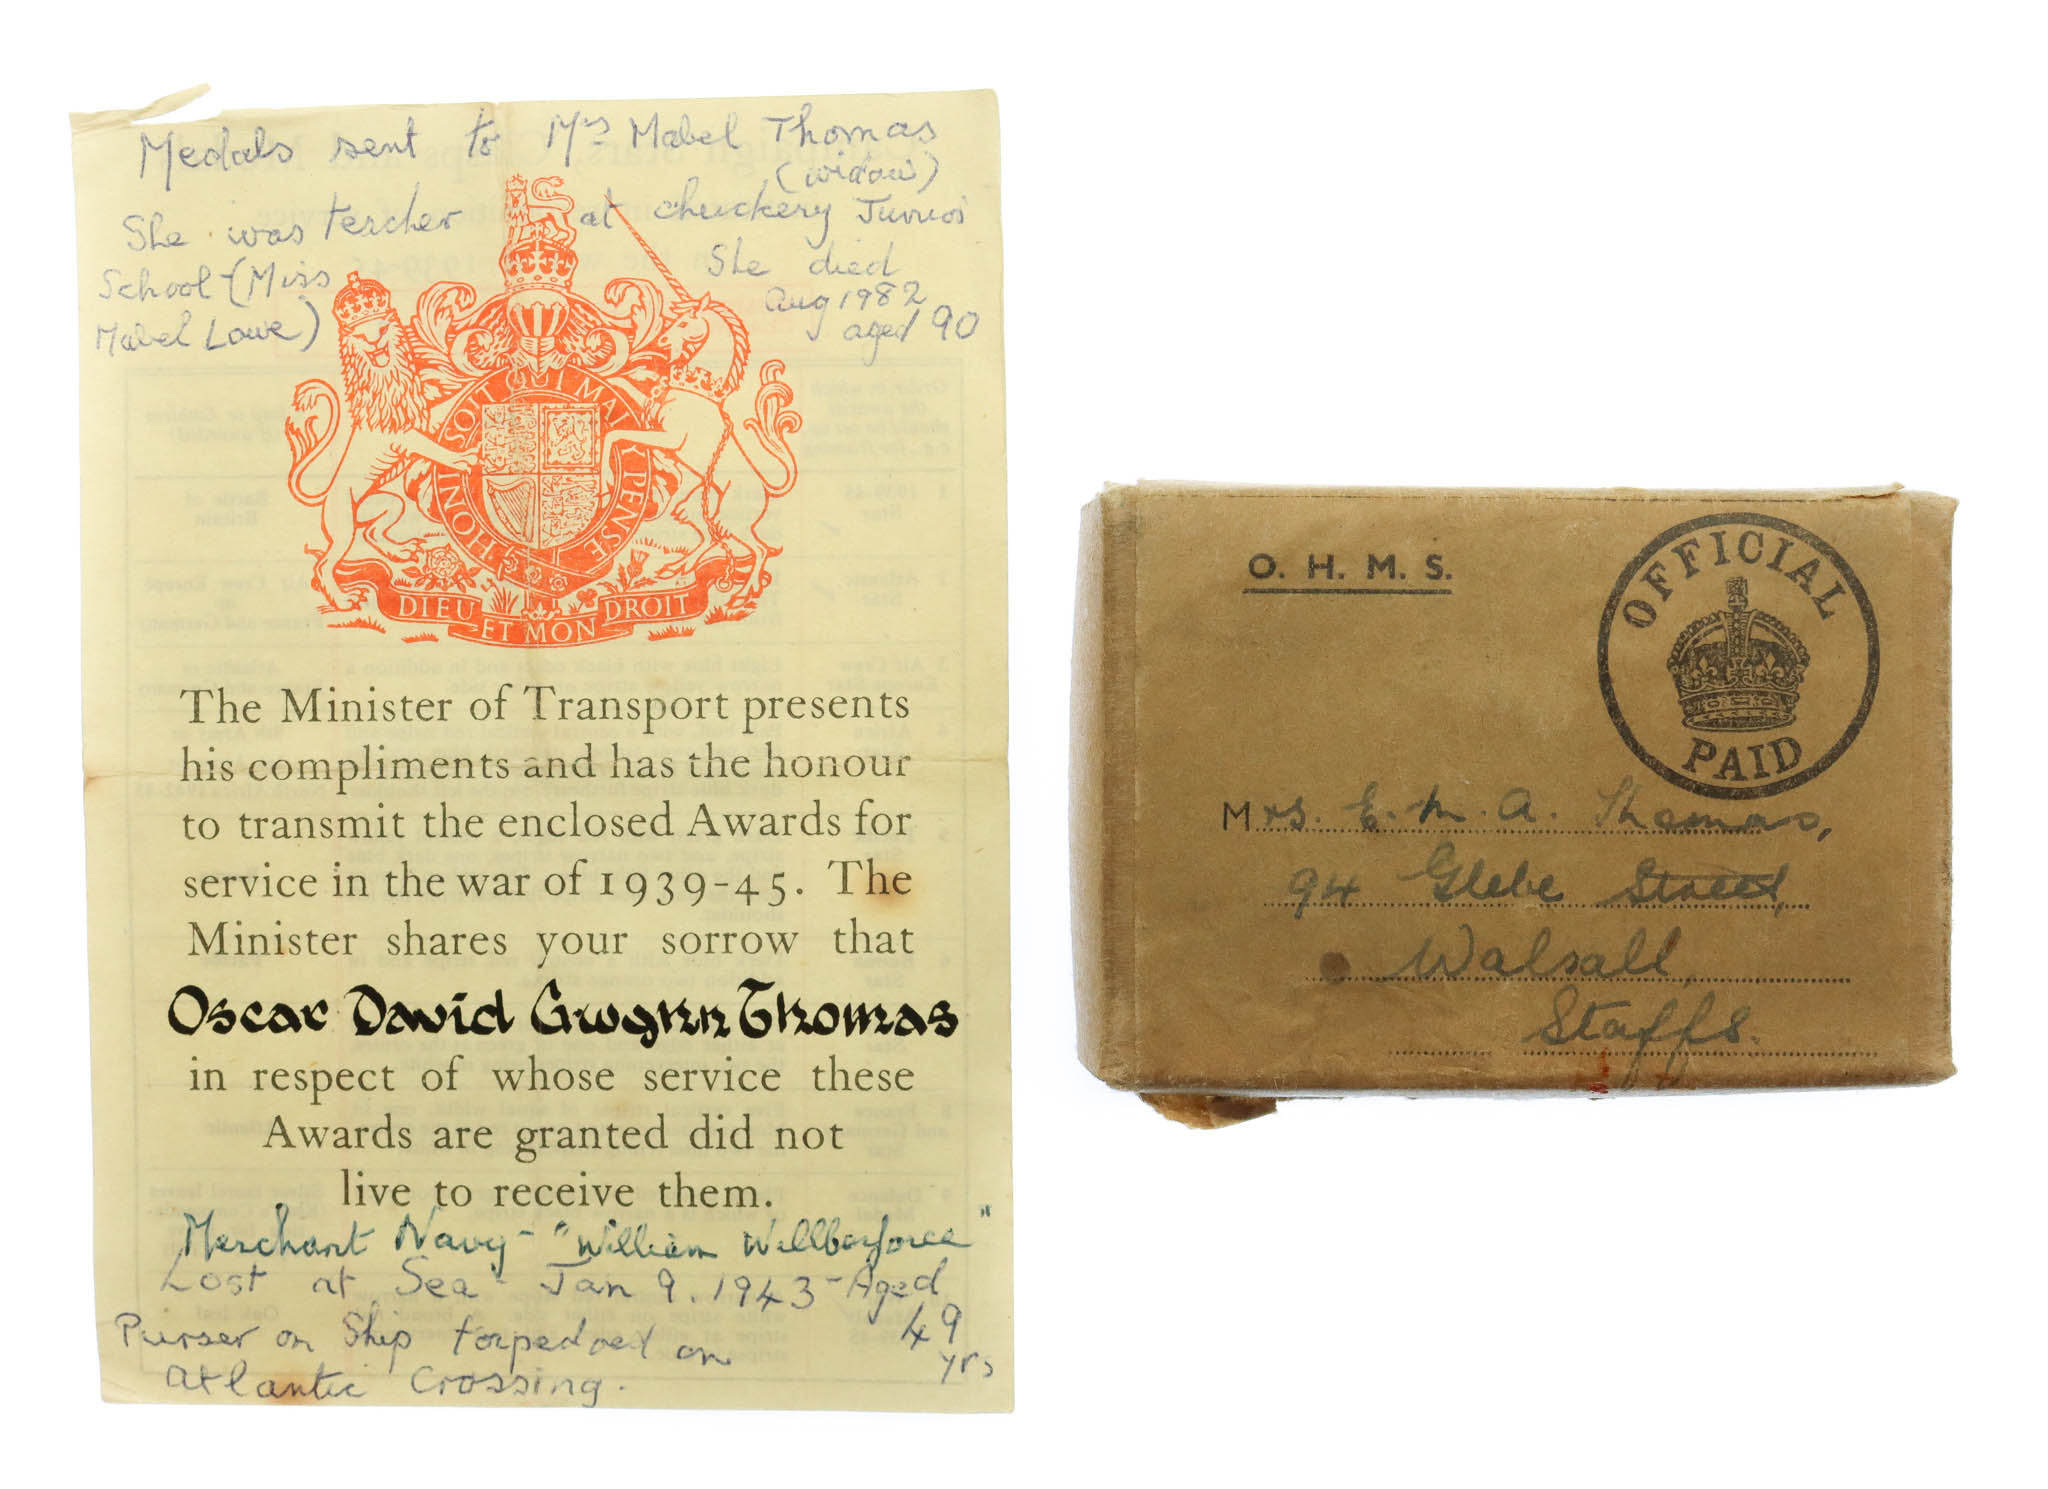 Medals sent to Mrs Mabel Thomas
(widow)
She was tercher at chuckery Junior
School (Miss
Mabel Lowe)
She died
Aug 1982
aged 90
HONI SOIT QUI MAL Y PENSE
DIEU ET MON DROIT
The Minister of Transport presents
his compliments and has the honour
to transmit the enclosed Awards for
service in the war of 1939-45. The
Minister shares your sorrow that
Oscar David Gwynn Thomas
in respect of whose service these
Awards are granted did not
live to receive them.
Merchant Navy - "William Willberforce"
Lost at Sea - Jan 9. 1943 - Aged
49
yrs
Purser on Ship torpedoed on
Atlantic Crossing.
O. H. M. S.
OFFICIAL
PAID
Mrs. E. M. A. Thomas,
94 Glebe Street,
Walsall,
Staffs.